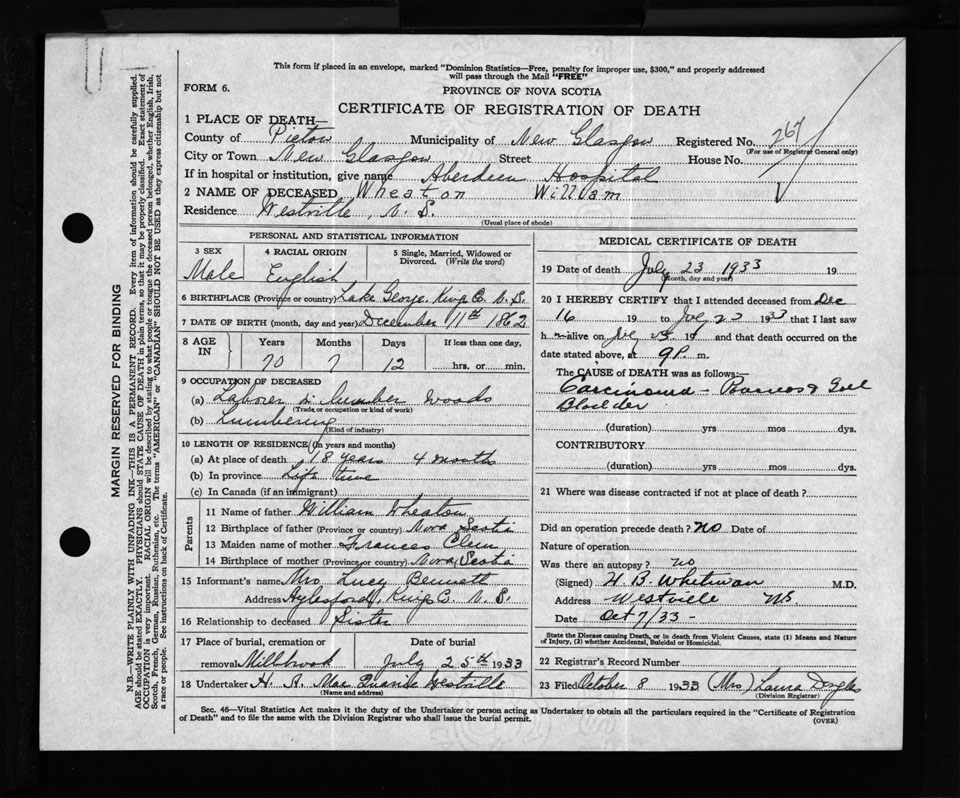 This form if placed in an envelope, marked "Dominion Statistics—Free, penalty for improper use, $300," and properly addressed
will pass through the Mail "FREE"
FORM 6.
PROVINCE OF NOVA SCOTIA
CERTIFICATE OF REGISTRATION OF DEATH
1 PLACE OF DEATH—
County of Pictou Municipality of New Glasgow Registered No. 267
(For use of Registrar General only)
City or Town New Glasgow Street House No.
If in hospital or institution, give name Aberdeen Hospital
2 NAME OF DECEASED Wheaton William
Residence Westville, N. S.
(Usual place of abode)
PERSONAL AND STATISTICAL INFORMATION
3 SEX 4 RACIAL ORIGIN 5 Single, Married, Widowed or
Divorced. (Write the word)
Male English
6 BIRTHPLACE (Province or country) Lake George. Kings Co. N. S.
7 DATE OF BIRTH (month, day and year) December 11th 1862
8 AGE IN Years Months Days If less than one day,
70 7 12 hrs. or min.
9 OCCUPATION OF DECEASED
(a) Laborer in lumber woods
(Trade, or occupation or kind of work)
(b) Lumbering
(Kind of industry)
10 LENGTH OF RESIDENCE (in years and months)
(a) At place of death 18 years 4 months
(b) In province Life time
(c) In Canada (if an immigrant)
Parents
11 Name of father William Wheaton
12 Birthplace of father (Province or country) Nova Scotia
13 Maiden name of mother Frances
14 Birthplace of mother (Province or country) Nova Scotia
15 Informant's name Mrs. Lucy Bennett
Address Aylesford, Kings Co. N. S.
16 Relationship to deceased Sister
17 Place of burial, cremation or Date of burial
removal Millbrook July 25th 1933
18 Undertaker H. R. Mac Westville
(Name and address)
MEDICAL CERTIFICATE OF DEATH
19 Date of death July 23 1933 19
(Month, day and year)
20 I HEREBY CERTIFY that I attended deceased from Dec
16 19 to July 23 1933 that I last saw
h alive on July 23 19 and that death occurred on the
date stated above, at 9 P. m.
The CAUSE of DEATH was as follows:—
Carcinoma - Pancreas & Gall
Bladder
(duration) yrs mos dys.
CONTRIBUTORY
(duration) yrs mos dys.
21 Where was disease contracted if not at place of death?
Did an operation precede death? No Date of
Nature of operation
Was there an autopsy? no
(Signed) H. B. Whitman M.D.
Address Westville NS.
Date Oct 7/33 -
State the Disease causing Death, or in death from Violent Causes, state (1) Means and Nature
of Injury, (2) whether Accidental, Suicidal or Homicidal.
22 Registrar's Record Number
23 Filed October 8 1933 (Mrs) Laura Douglas
(Division Registrar)
Sec. 46—Vital Statistics Act makes it the duty of the Undertaker or person acting as Undertaker to obtain all the particulars required in the "Certificate of Registration
of Death" and to file the same with the Division Registrar who shall issue the burial permit.
(OVER)
MARGIN RESERVED FOR BINDING
N.B.—WRITE PLAINLY WITH UNFADING INK—THIS IS A PERMANENT RECORD. Every item of information should be carefully supplied.
AGE should be stated EXACTLY. PHYSICIANS should STATE CAUSE OF DEATH in plain terms, so that it may be properly classified. Exact statement of
OCCUPATION is very important. RACIAL ORIGIN will be described by stating to what people or tongue the deceased person belonged, whether English, Irish,
Scotch, French, German, Russian, Ruthenian, etc. The terms "AMERICAN" or "CANADIAN" SHOULD NOT BE USED as they express citizenship but not
a race or people. See instructions on back of Certificate.